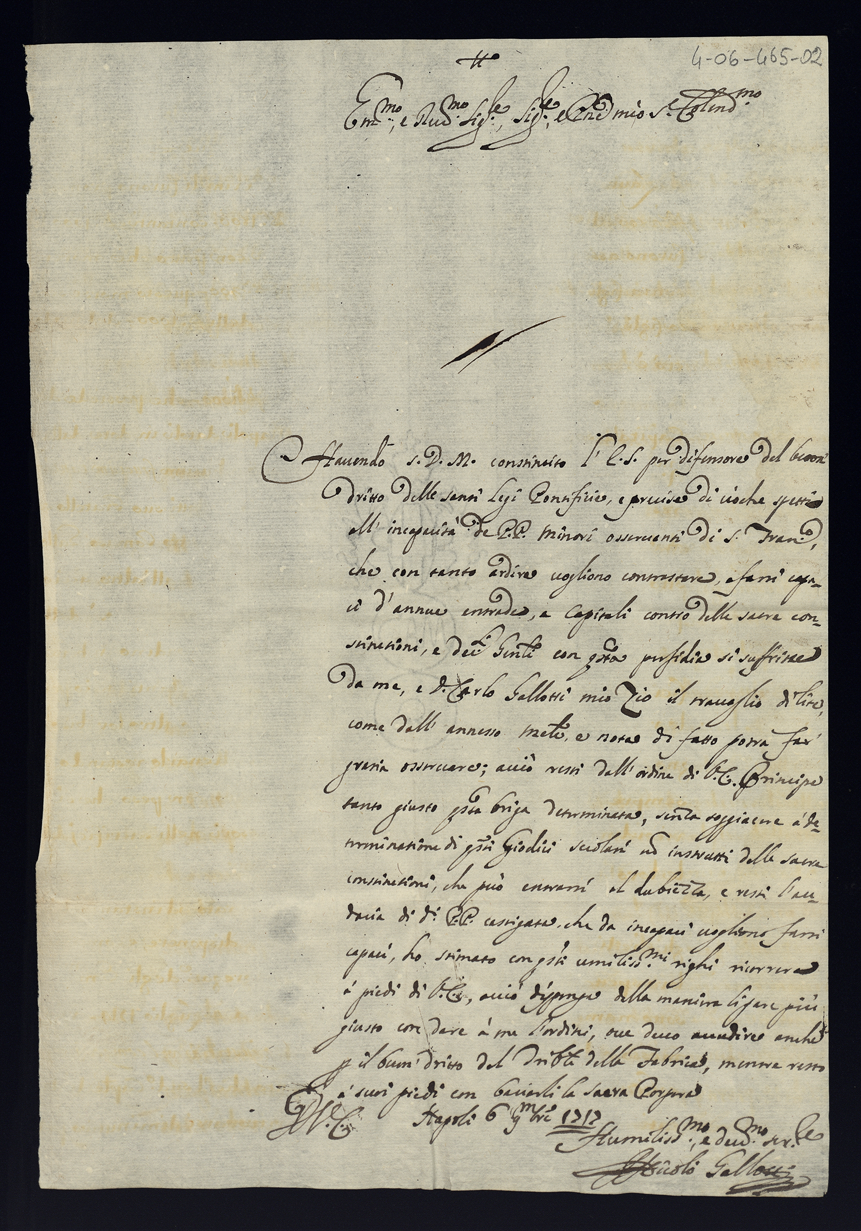 4-06-465-02
Em.mo, e Rev.mo Sig.re, Sig.re, e P.ne mio S.e Colend.mo
Havendo S. D. M. constituito l'E. S. per difensore del buon
dritto delle santi Legi Pontificie, e precise di cioche spetta
all' incapacità de P.P. Minori osservanti di S. Fran.co,
che con tanto ardire vogliono contrastare, e farsi capa-
ci d'annue entrade, e Capitali contro delle sacre con-
stitutioni, e con q.sta perfidia si suffrisce
da me, e D. Carlo Gallotti mio Zio il travaglio di lite,
come dall' annesso mem.le, e nota di fatto potrà far
gratia osservare; acciò resti dall' ordine di V. E. Principe
tanto giusto q.sta briga determinata, senza soggiacere à de-
terminatione di q.sti Giodici secolari nò instrutti delle sacre
constitutioni, che può entrarsi al dubiezza, e resti l'au-
dacia di d.i P.P. castigata, che da incapaci vogliono farsi
capaci, hò stimato con q.sti umiliss.mi righi ricorrere
à piedi di V. E., acciò disponga della maniera li pare più
giusto con dare à me l'ordini, ove devo accudire anche
p il buon dritto del Trib.le della Fabrica, mentre resto
à suoi piedi con baciarli la sacra Porpora
Di V. E. Napoli 6 9mbre 1717
Humiliss.mo, e dev.mo ser.re
Nicolò Gallotti